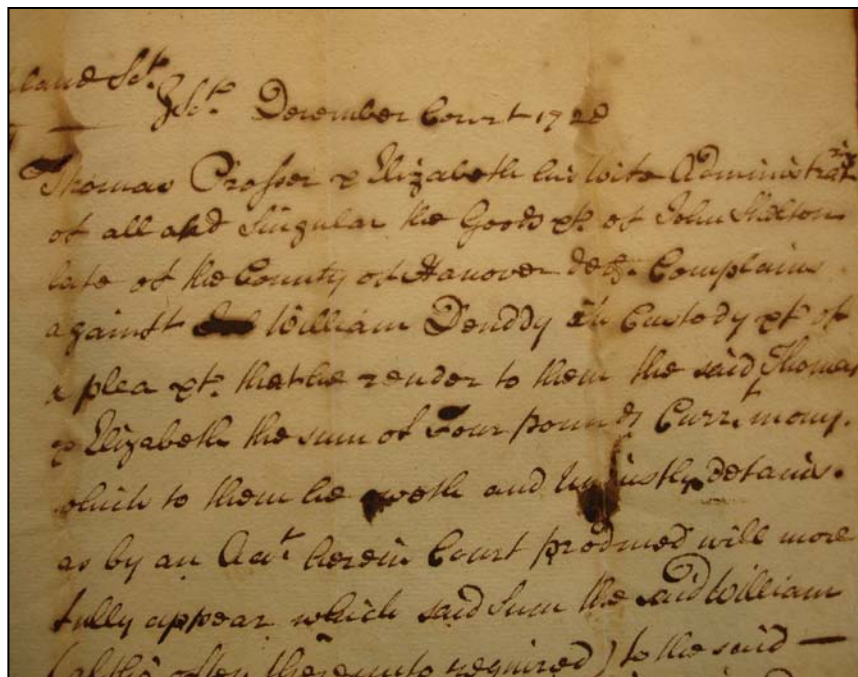 land Sct.
Sct. December Court 1728
Thomas Prosser & Elizabeth his Wife Administrat rix
of all and Singular the Goods &c. of John Skelton
late of the County of Hanover decd. Complain
against William Denddy in Custody &c. of
a plea &c. that he render to them the said Thomas
& Elizabeth the sum of Four pounds Currt. mony.
which to them he oweth and Unjustly detains.
as by an Acct. herein Court produced will more
fully appear which said Sum the said William
(altho often thereunto required) to the said —